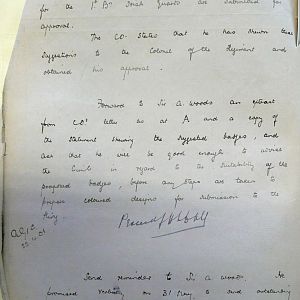 for the 1st Bn Irish Guards are submitted for
approval.
The CO. states that he has shown these
suggestions to the Colonel of the Regiment and
obtained his approval.
Forward to Sir A. Woods an extract
from CO's letter as at A and a copy
of the statement showing the suggested badges, and
ask that he will be good enough to advise
the in regard to the suitability of the
proposed badges, before any steps are taken to
prepare coloured designs for submission to the
King.
Send reminder to Sir A. Woods. He
promised verbally on 31 May to send outstanding